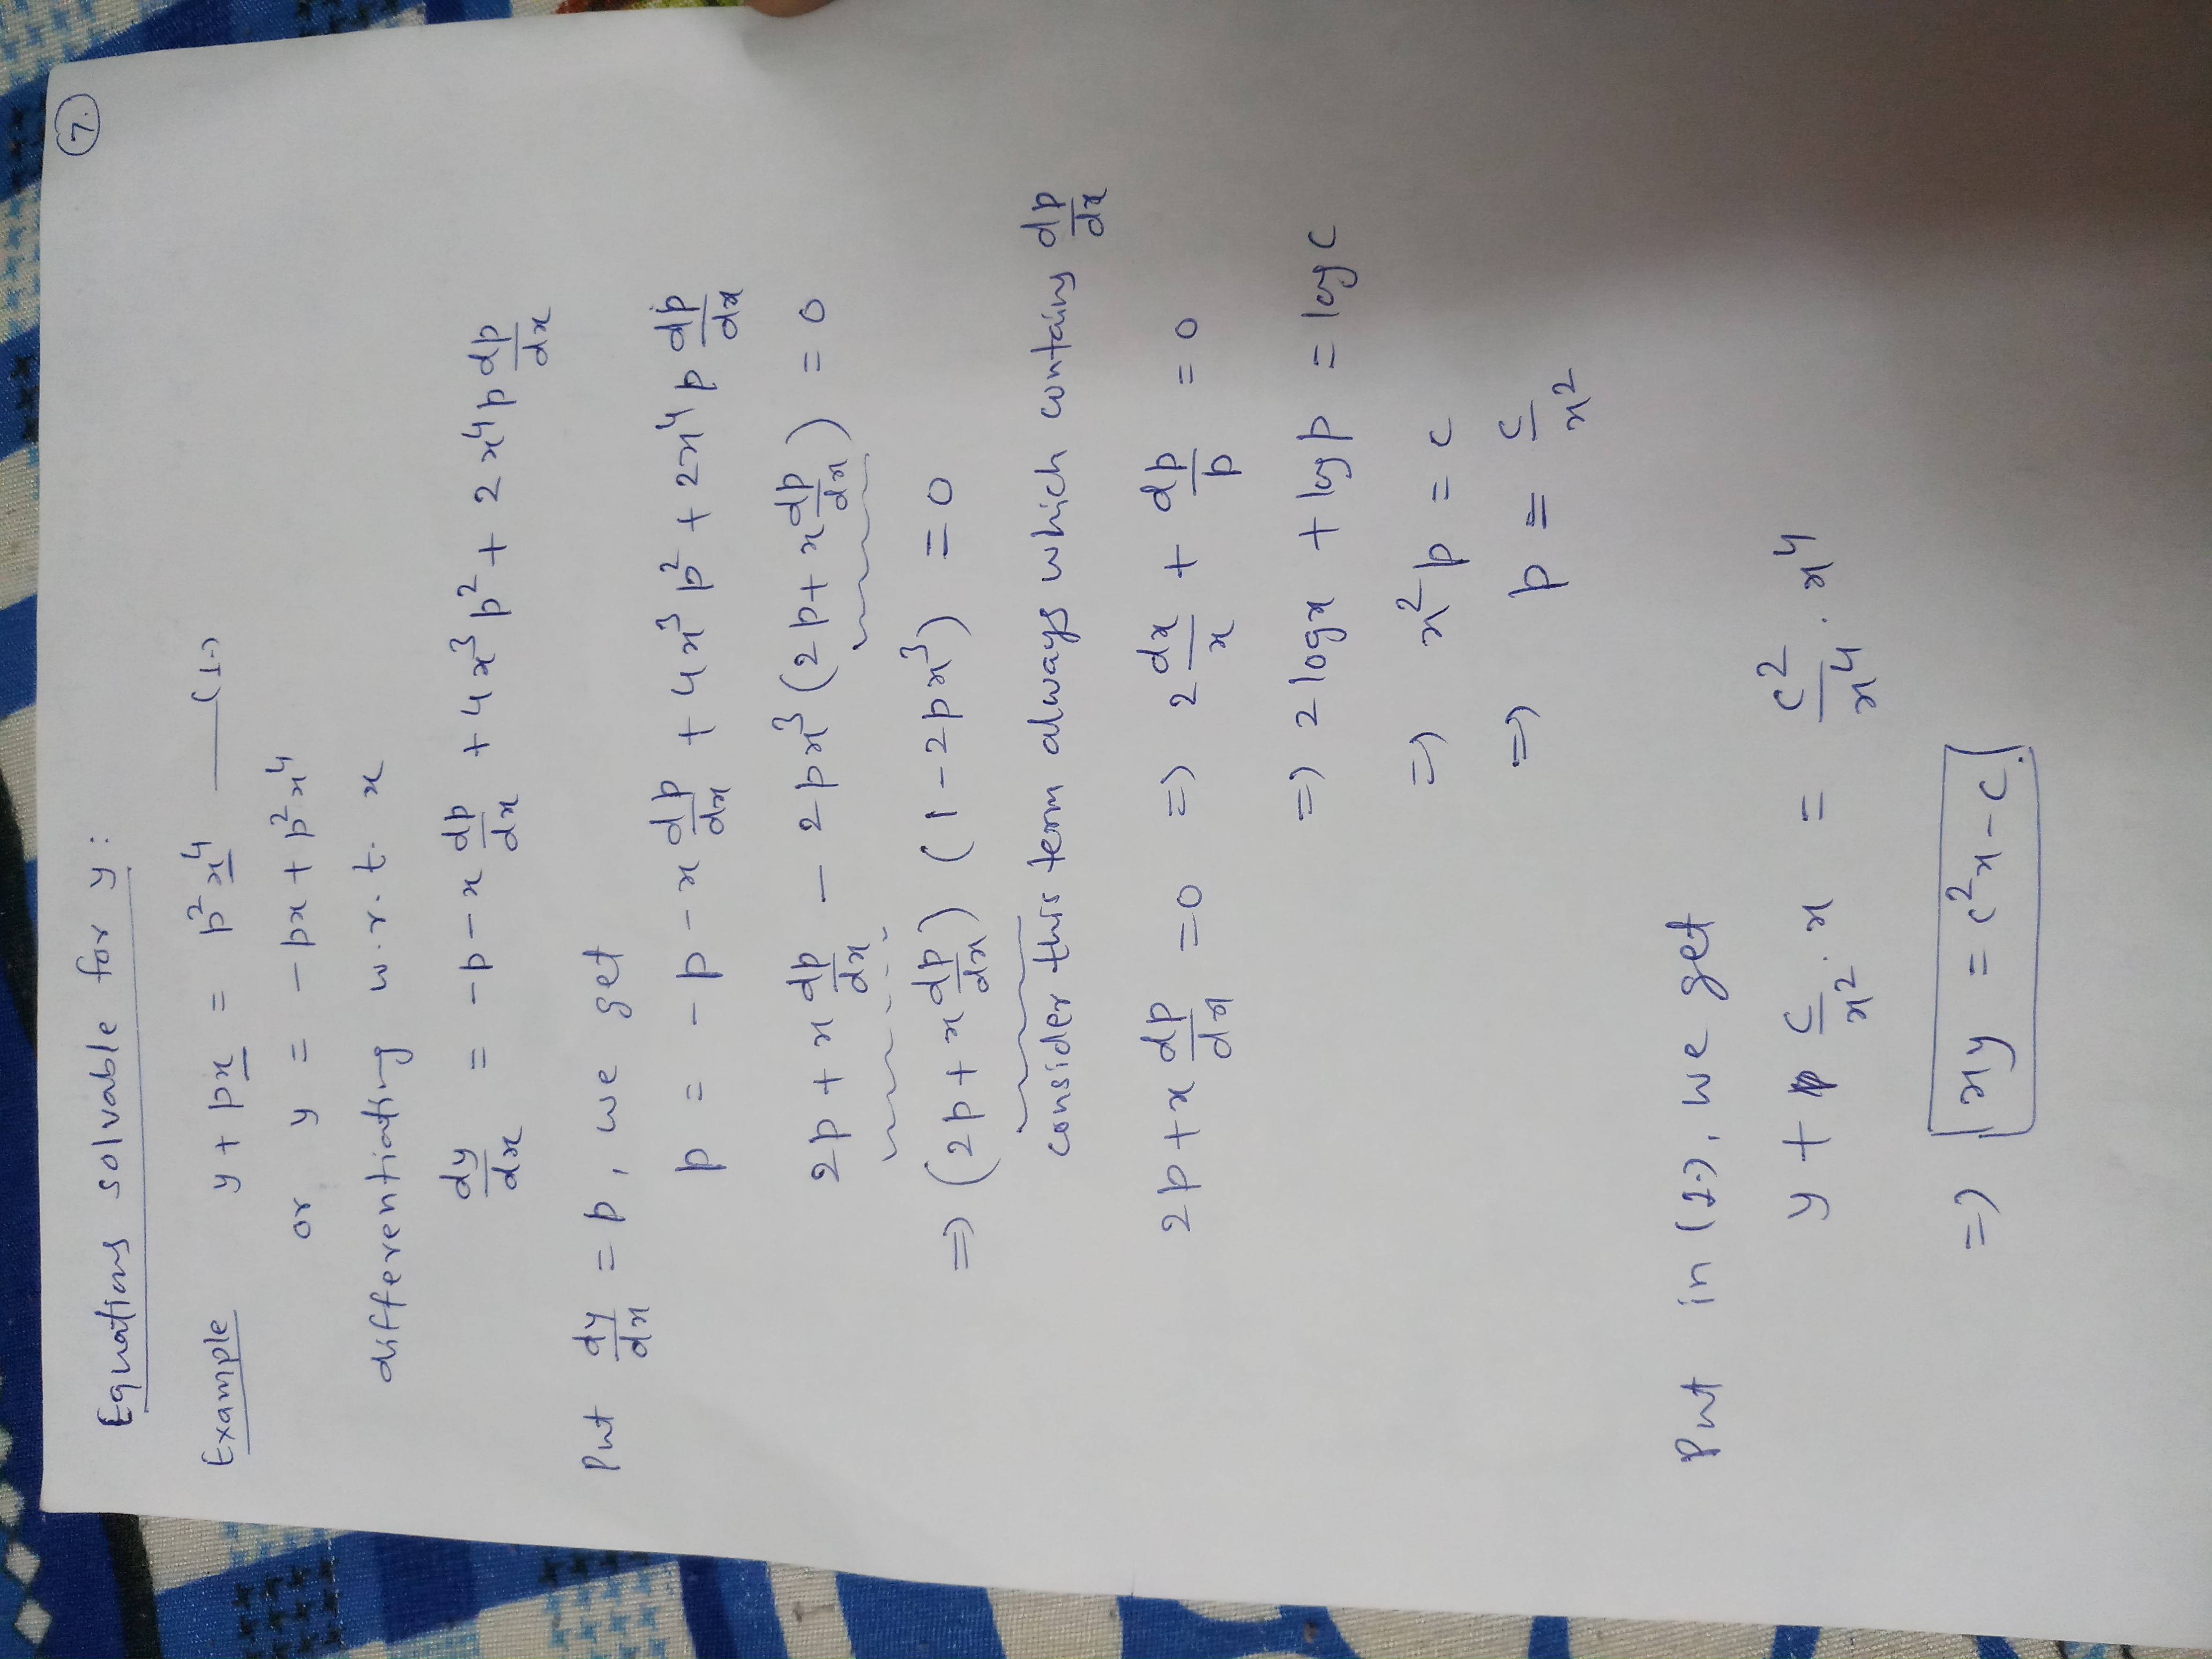 7.
Equations solvable for y:
Example y + px = p²x⁴ —(1.)
or y = -px + p²x⁴
differentiating w.r.t. x
dy/dx = -p - x dp/dx + 4x³p² + 2x⁴p dp/dx
Put dy/dx = p, we get
p = -p - x dp/dx + 4x³p² + 2x⁴p dp/dx
2p + x dp/dx - 2px³(2p + x dp/dx) = 0
⇒ (2p + x dp/dx) (1 - 2px³) = 0
consider this term always which containg dp/dx
2p + x dp/dx = 0 ⇒ 2 dx/x + dp/p = 0
⇒ 2 log x + log p = log c
⇒ x²p = c
⇒ p = c/x²
Put in (1.), we get
y + c/x² . x = c²/x⁴ . x⁴
⇒ xy = c²x - c.